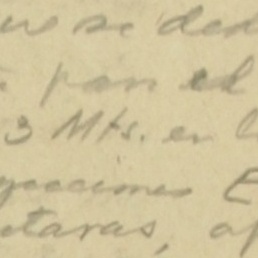 se ded
pan el
3 Mts. en l
yecciones E
etaras, a